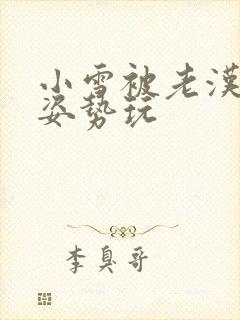 小雪被老漢
姿勢玩
李臭哥